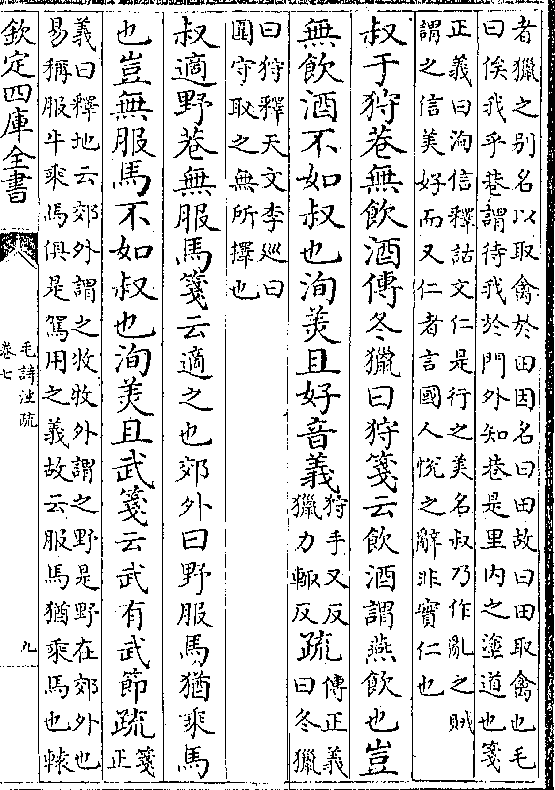 者獵之别名以取禽於田因名曰田故曰田取禽也毛
曰俟我乎巷謂待我於門外知巷是里内之塗道也箋
正義曰洵信釋詁文仁是行之美名叔乃作亂之賊
謂之信美好而又仁者言國人悅之辭非實仁也
叔于狩巷無飲酒傳冬獵曰狩箋云飲酒謂燕飲也豈
無飲酒不如叔也洵美且好音義狩手又反
獵力輙反疏傳正義
曰冬獵
曰狩釋天文李廵曰
圍守取之無所擇也
叔適野巷無服馬箋云適之也郊外曰野服馬猶乘馬
也豈無服馬不如叔也洵美且武箋云武有武節疏箋
正
義曰釋地云郊外謂之牧牧外謂之野是野在郊外也
易稱服牛乘馬俱是駕用之義故云服馬猶乘馬也轅
欽定四庫全書
毛詩注疏
卷七
九